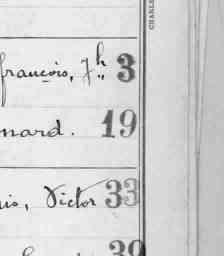 françois, Jh 3
nard. 19
is, Victor 33
39
CHARLE